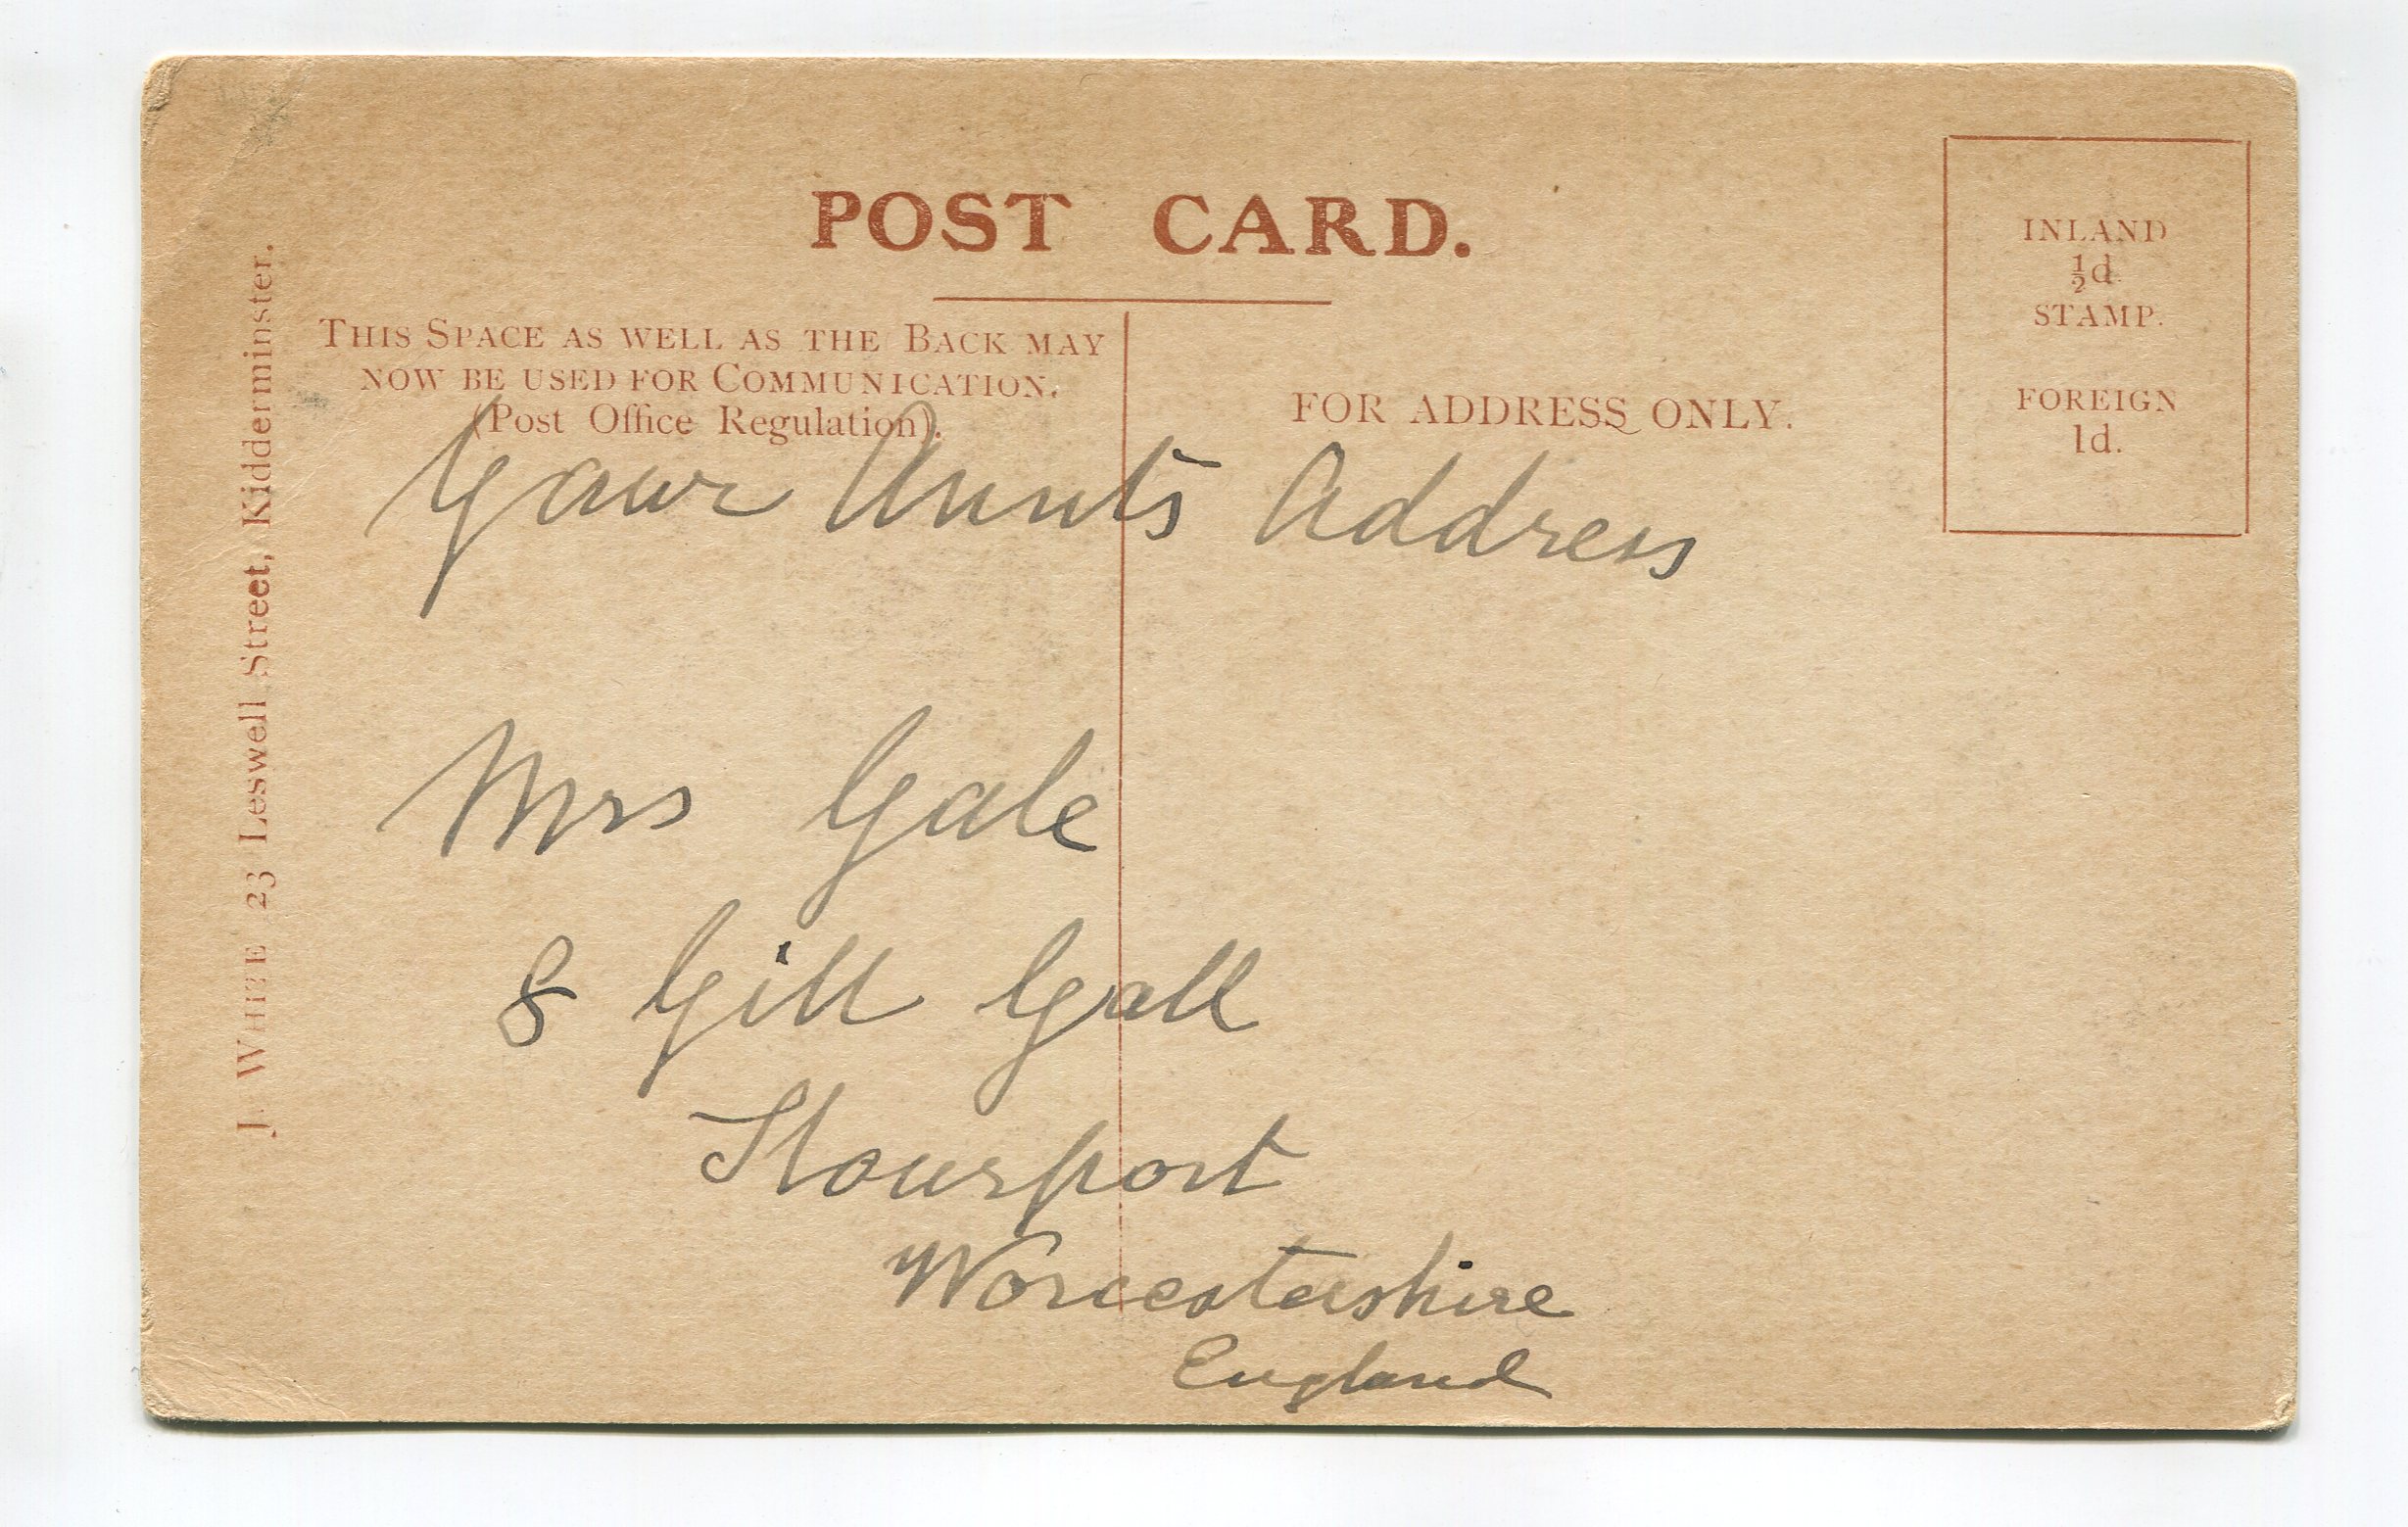 POST CARD.
THIS SPACE AS WELL AS THE BACK MAY
NOW BE USED FOR COMMUNICATION.
(Post Office Regulation).
FOR ADDRESS ONLY.
INLAND
½d.
STAMP.
FOREIGN
1d.
J. WHITE 23 Leswell Street, Kidderminster.
Your Aunts Address
Mrs Gale
8 Gill Gall
Stourport
Worcestershire
England